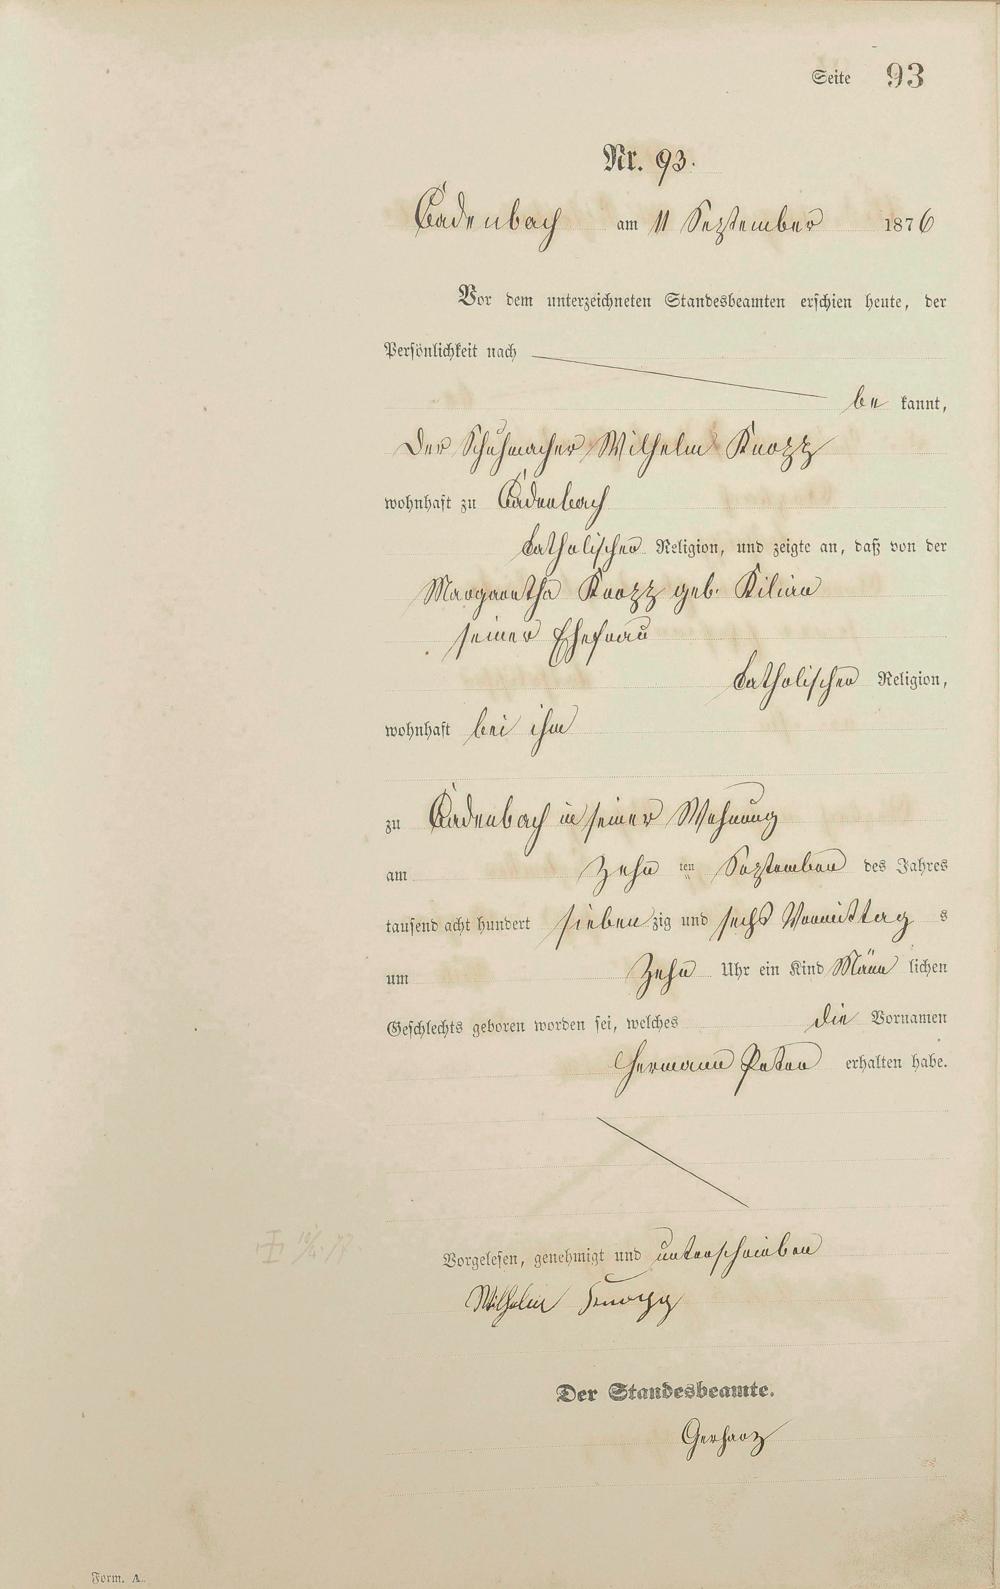 Seite 93
Nr. 93.
Cadenbach am 11 September 1876
Vor dem unterzeichneten Standesbeamten erschien heute, der
Persönlichkeit nach
be kannt,
der Schuhmacher Wilhelm Knopp
wohnhaft zu Cadenbach
katholischer Religion, und zeigte an, daß von der
Margaretha Knopp geb. Kilian
seiner Ehefrau
katholischer Religion,
wohnhaft bei ihm
zu Cadenbach in seiner Wohnung
am Zehn ten September des Jahres
tausend acht hundert sieben zig und sechs Vormittag s
um Zehn Uhr ein Kind Männ lichen
Geschlechts geboren worden sei, welches die Vornamen
Hermann Peter erhalten habe.
Vorgelesen, genehmigt und unterschrieben
Wilhelm Knopp
Der Standesbeamte.
Gerharz
Form. A.